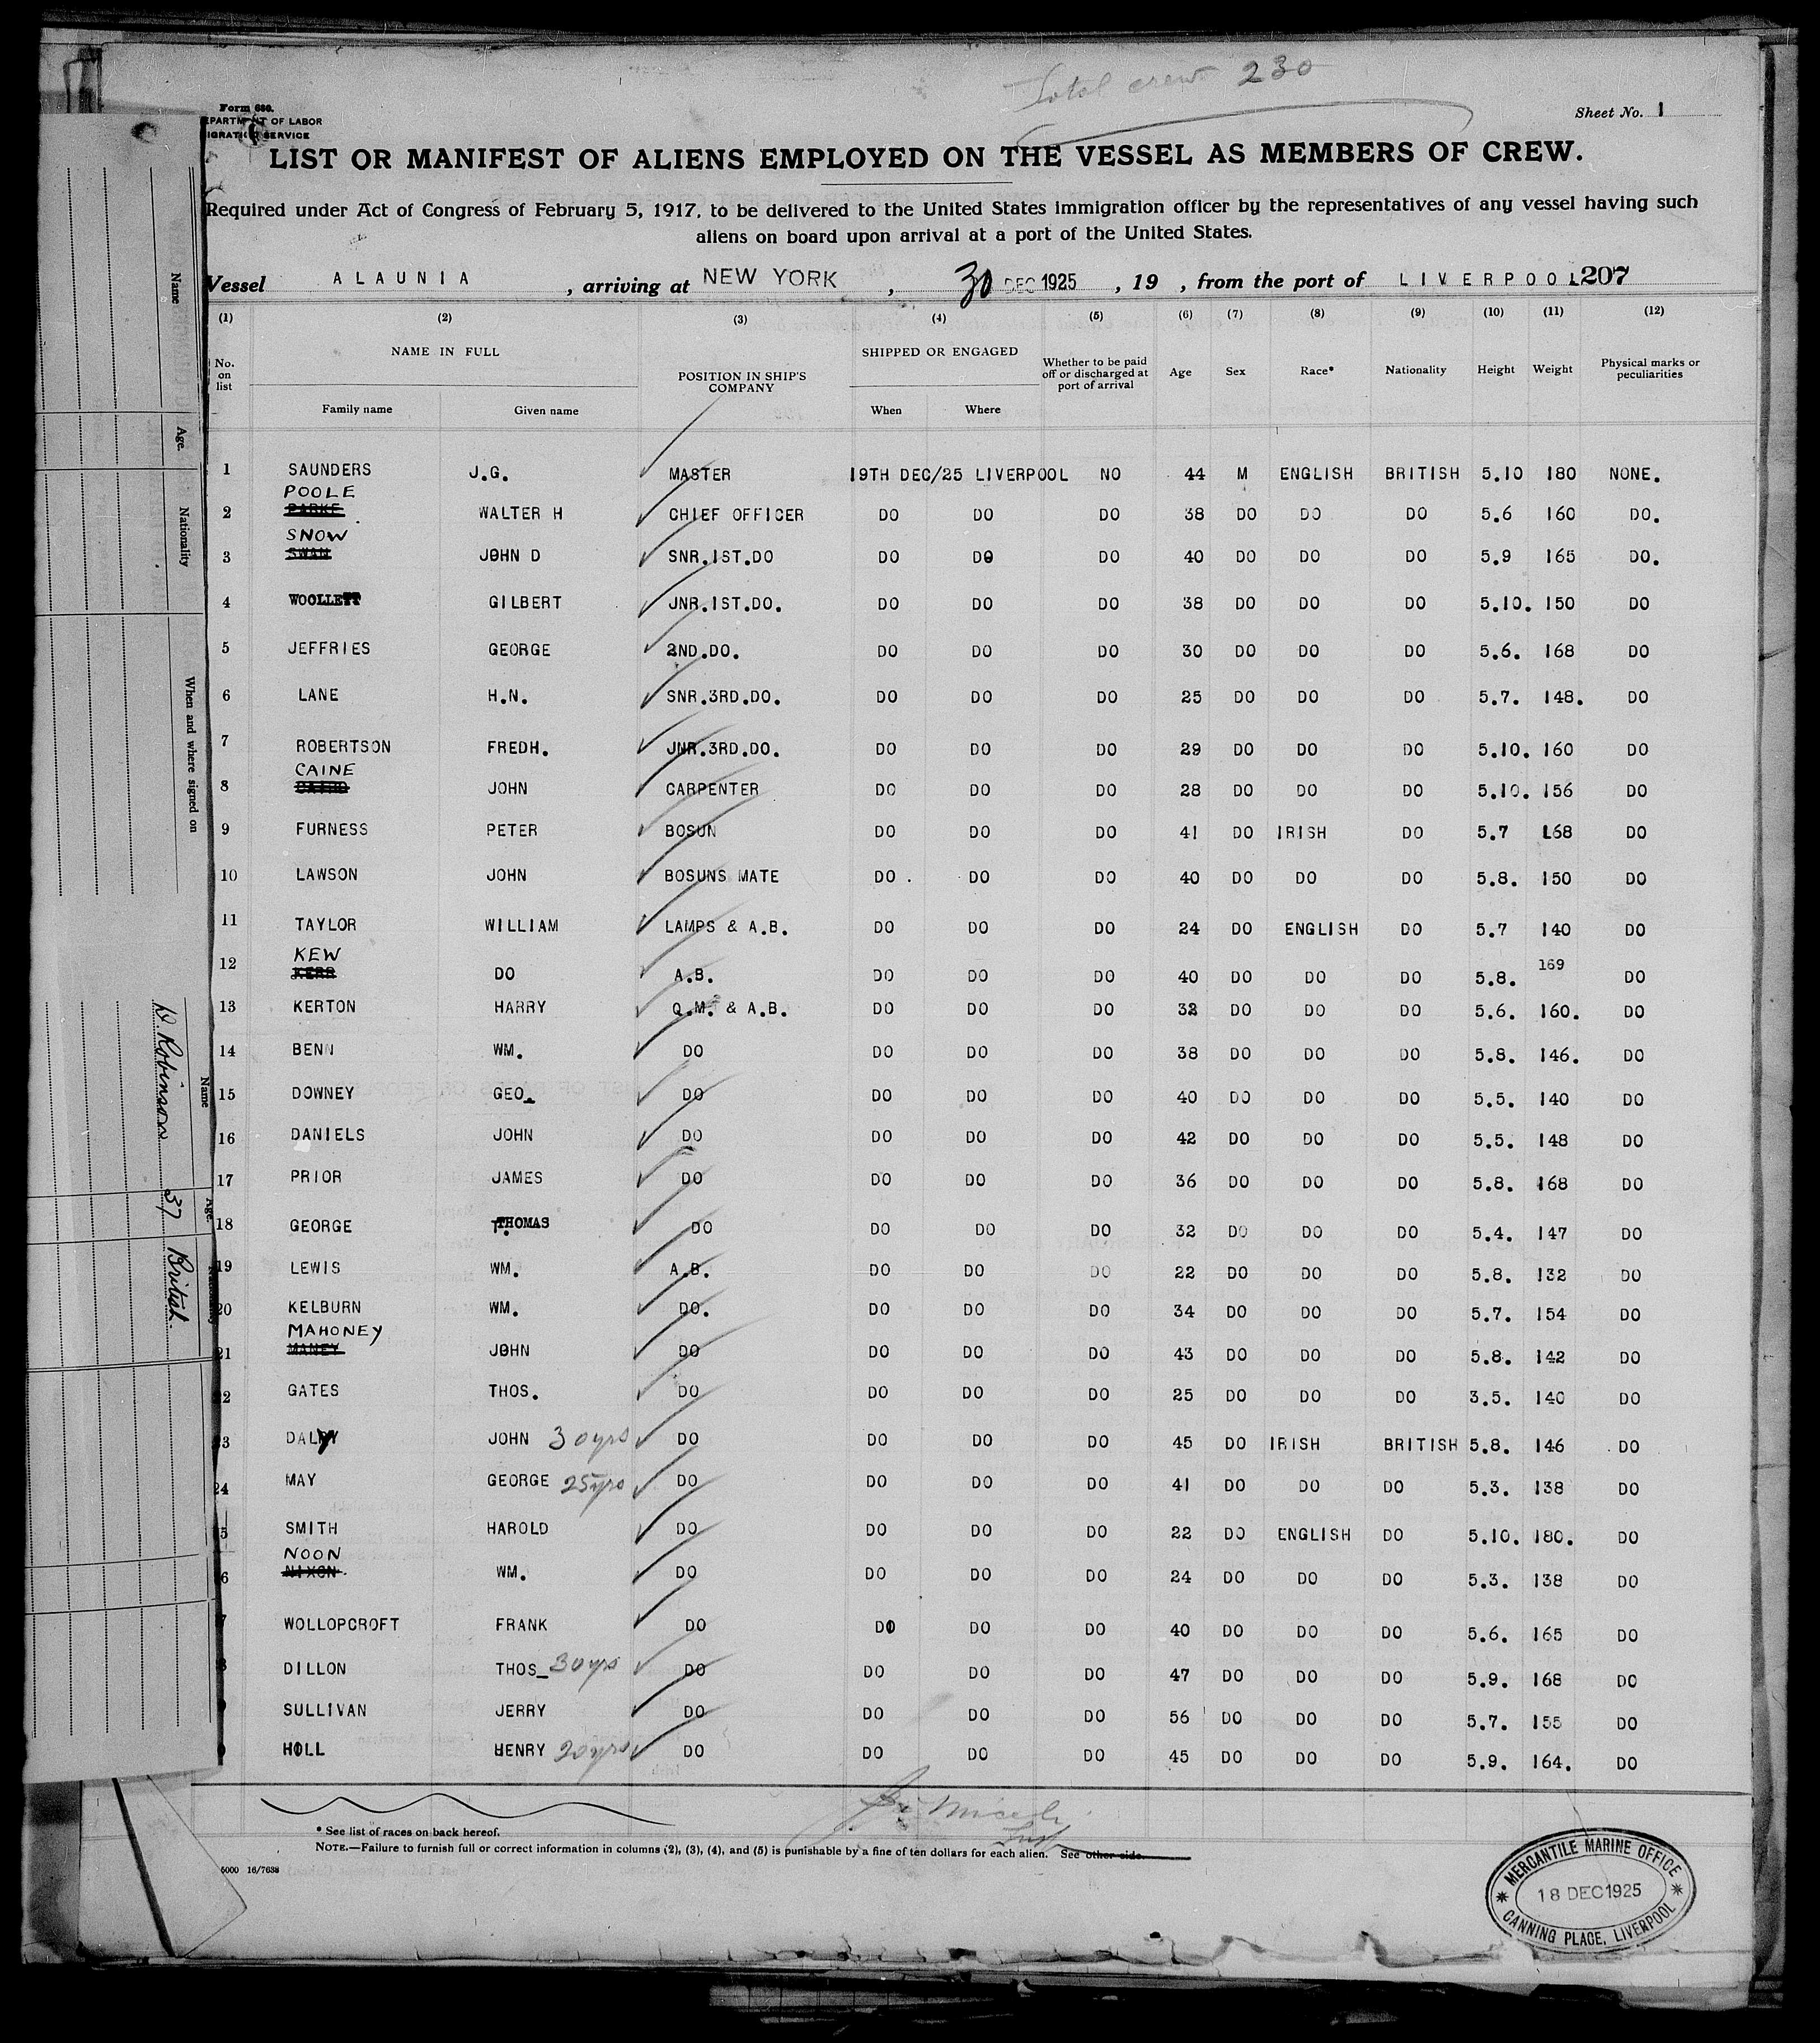 Total crew 230
Form 680.
EPARTMENT OF LABOR
IGRATION SERVICE
Sheet No. 1
LIST OR MANIFEST OF ALIENS EMPLOYED ON THE VESSEL AS MEMBERS OF CREW.
Required under Act of Congress of February 5, 1917, to be delivered to the United States immigration officer by the representatives of any vessel having such
aliens on board upon arrival at a port of the United States.
Vessel ALAUNIA, arriving at NEW YORK, 30 DEC 1925, 19 , from the port of LIVERPOOL 207
(1) (2) (3) (4) (5) (6) (7) (8) (9) (10) (11) (12)
No. on list NAME IN FULL POSITION IN SHIP'S COMPANY SHIPPED OR ENGAGED Whether to be paid off or discharged at port of arrival Age Sex Race* Nationality Height Weight Physical marks or peculiarities
Family name Given name When Where
1 SAUNDERS J.G. MASTER 19TH DEC/25 LIVERPOOL NO 44 M ENGLISH BRITISH 5.10 180 NONE.
POOLE
2 PARKE WALTER H CHIEF OFFICER DO DO DO 38 DO DO DO 5.6 160 DO.
SNOW
3 SWAN JOHN D SNR.1ST.DO DO DO DO 40 DO DO DO 5.9 165 DO.
4 WOOLLETT GILBERT JNR.1ST.DO. DO DO DO 38 DO DO DO 5.10. 150 DO
5 JEFFRIES GEORGE 2ND.DO. DO DO DO 30 DO DO DO 5.6. 168 DO
6 LANE H.N. SNR.3RD.DO. DO DO DO 25 DO DO DO 5.7. 148. DO
7 ROBERTSON FREDH. JNR.3RD.DO. DO DO DO 29 DO DO DO 5.10. 160 DO
CAINE
8 JOHN CARPENTER DO DO DO 28 DO DO DO 5.10. 156 DO
9 FURNESS PETER BOSUN DO DO DO 41 DO IRISH DO 5.7 168 DO
10 LAWSON JOHN BOSUNS MATE DO . DO DO 40 DO DO DO 5.8. 150 DO
11 TAYLOR WILLIAM LAMPS & A.B. DO DO DO 24 DO ENGLISH DO 5.7 140 DO
KEW
12 KERR DO A.B. DO DO DO 40 DO DO DO 5.8. 169 DO
13 KERTON HARRY Q.M. & A.B. DO DO DO 32 DO DO DO 5.6. 160. DO
14 BENN WM. DO DO DO DO 38 DO DO DO 5.8. 146. DO
15 DOWNEY GEO. DO DO DO DO 40 DO DO DO 5.5. 140 DO
16 DANIELS JOHN DO DO DO DO 42 DO DO DO 5.5. 148 DO
17 PRIOR JAMES DO DO DO DO 36 DO DO DO 5.8. 168 DO
18 GEORGE THOMAS DO DO DO DO 32 DO DO DO 5.4. 147 DO
19 LEWIS WM. A.B. DO DO DO 22 DO DO DO 5.8. 132 DO
20 KELBURN WM. DO. DO DO DO 34 DO DO DO 5.7. 154 DO
MAHONEY
21 MANEY JOHN DO DO DO DO 43 DO DO DO 5.8. 142 DO
2 GATES THOS. DO DO DO DO 25 DO DO DO 3.5. 140 DO
3 DALY JOHN 30yrs DO DO DO DO 45 DO IRISH BRITISH 5.8. 146 DO
24 MAY GEORGE 25yrs DO DO DO DO 41 DO DO DO 5.3. 138 DO
5 SMITH HAROLD DO DO DO DO 22 DO ENGLISH DO 5.10. 180. DO
NOON
6 NIXON WM. DO DO DO DO 24 DO DO DO 5.3. 138 DO
7 WOLLOPCROFT FRANK DO DO DO DO 40 DO DO DO 5.6. 165 DO
DILLON THOS 30yrs DO DO DO DO 47 DO DO DO 5.9. 168 DO
SULLIVAN JERRY DO DO DO DO 56 DO DO DO 5.7. 155 DO
HILL HENRY 20yrs DO DO DO DO 45 DO DO DO 5.9. 164. DO
* See list of races on back hereof.
NOTE.—Failure to furnish full or correct information in columns (2), (3), (4), and (5) is punishable by a fine of ten dollars for each alien. See other side.
5000 16/7638
MERCANTILE MARINE OFFICE
18 DEC 1925
CANNING PLACE, LIVERPOOL
Name Age. Nationality When and where signed on
Name Age. Nationality
D. Robinson 37 British.